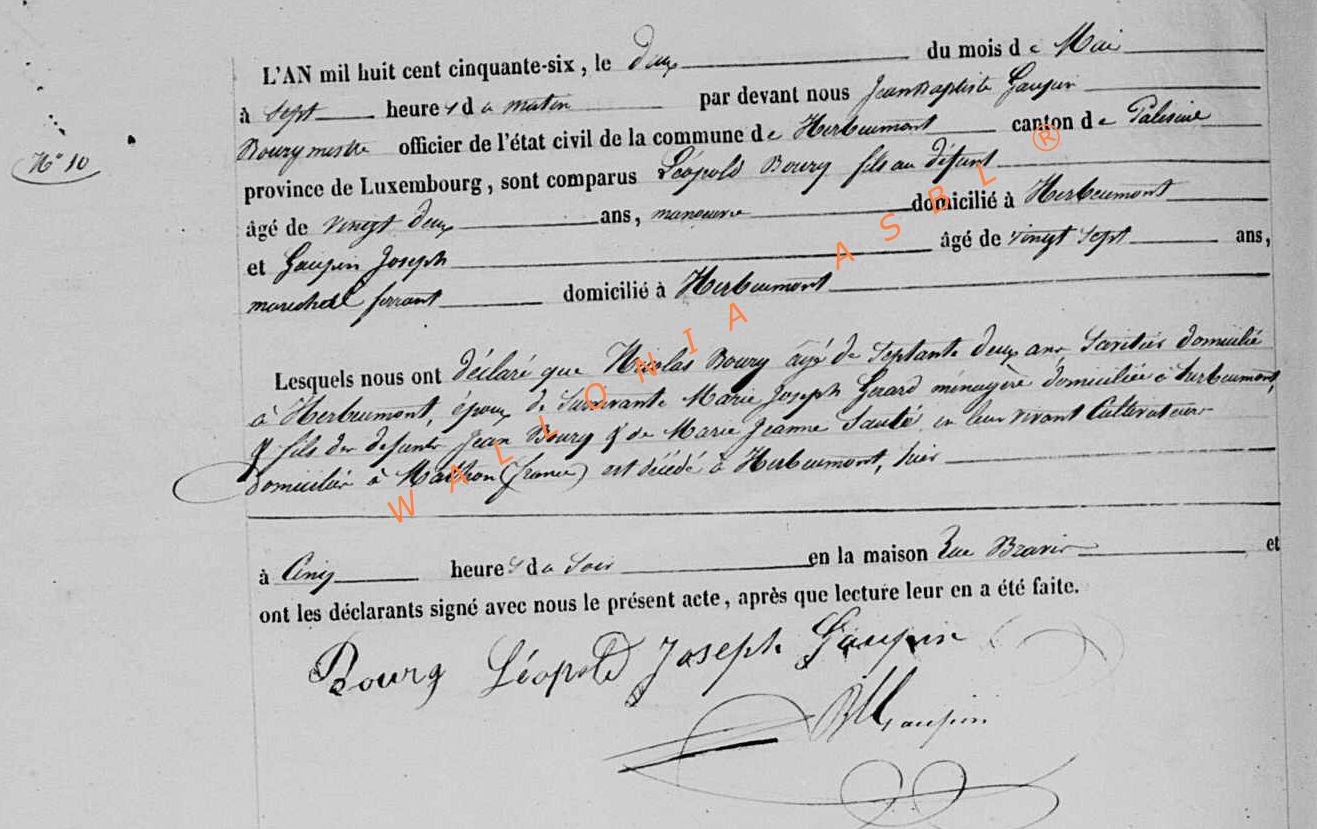 L'AN mil huit cent cinquante-six, le deux du mois de Mai
à sept heures du matin par devant nous Jean Baptiste Gaupin
Bourgmestre officier de l'état civil de la commune de Herbeumont canton de Paliseul
N° 10
province de Luxembourg, sont comparus Léopold Bourg fils au défunt
âgé de vingt deux ans, manoeuvre domicilié à Herbeumont
et Gaupin Joseph âgé de vingt sept ans,
maréchal ferrant domicilié à Herbeumont
Lesquels nous ont déclaré que Nicolas Bourg âgé de septante deux ans, domicilié
à Herbeumont, époux de survivante Marie Joseph Gerard ménagère domiciliée à herbeumont,
& fils des defunts Jean Bourg & de Marie Jeanne Sauté en leur vivant Cultivateurs
domiciliés à (france) est décédé à Herbeumont, hier
à Cinq heures du soir en la maison Rue et
ont les déclarants signé avec nous le présent acte, après que lecture leur en a été faite.
Bourg Léopold Joseph Gaupin
Gaupin
WALLONIA ASBL ®